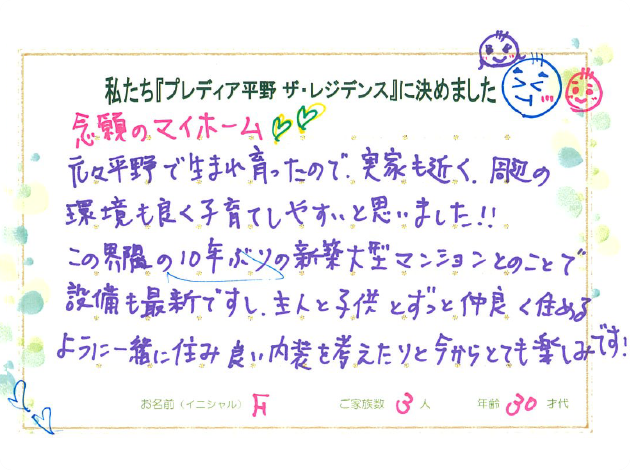 私たち『プレディア平野 ザ・レジデンス』に決めました
念願のマイホーム
元々平野で生まれ育ったので、実家も近く、周辺の
環境も良く子育てしやすいと思いました!!
この界隈の10年ぶりの新築大型マンションとのことで
設備も最新ですし、主人と子供とずっと仲良く住める
ように一緒に住み良い内装を考えたりと今からとても楽しみです!
お名前（イニシャル） F ご家族数 3 人 年齢 30 才代